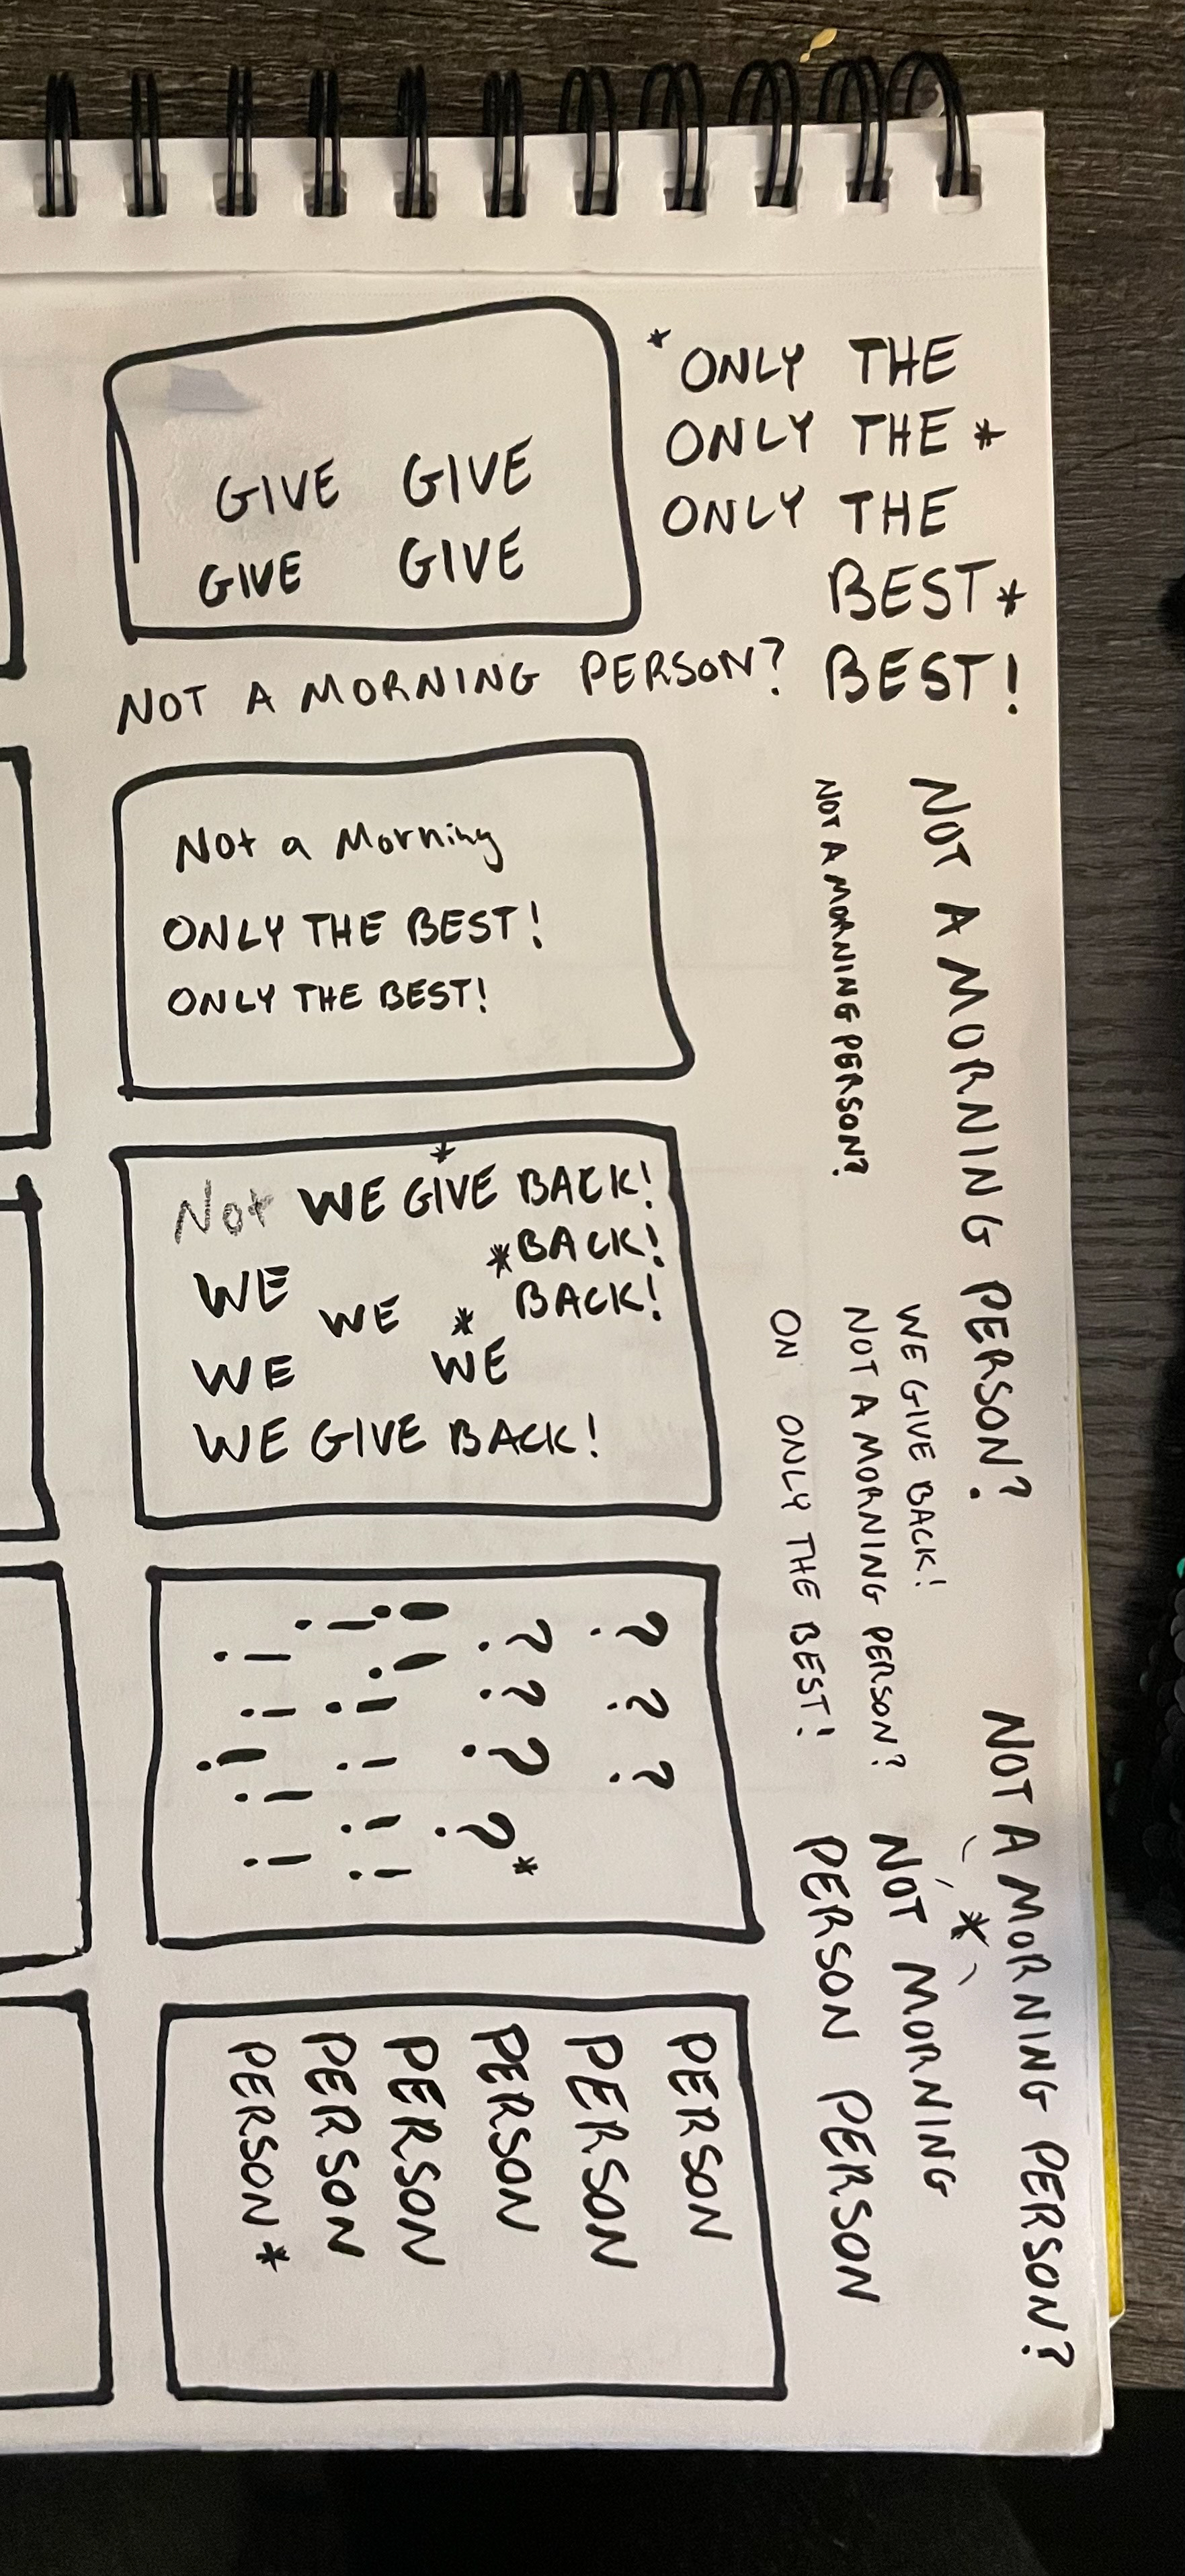 GIVE GIVE
GIVE GIVE
*ONLY THE
ONLY THE *
ONLY THE
BEST *
BEST!
NOT A MORNING PERSON?
Not a Morning
ONLY THE BEST!
ONLY THE BEST!
NOT A MORNING PERSON?
NOT A MORNING PERSON?
*
Not WE GIVE BACK!
*BACK!
WE WE * BACK!
WE WE
WE GIVE BACK!
WE GIVE BACK!
NOT A MORNING PERSON?
ON ONLY THE BEST!
? ? ?
? ? ? ?*
! ! ! ! ! ! !
! ! ! ! ! !
NOT A MORNING PERSON?
*
NOT MORNING
PERSON PERSON
PERSON
PERSON
PERSON
PERSON
PERSON
PERSON*